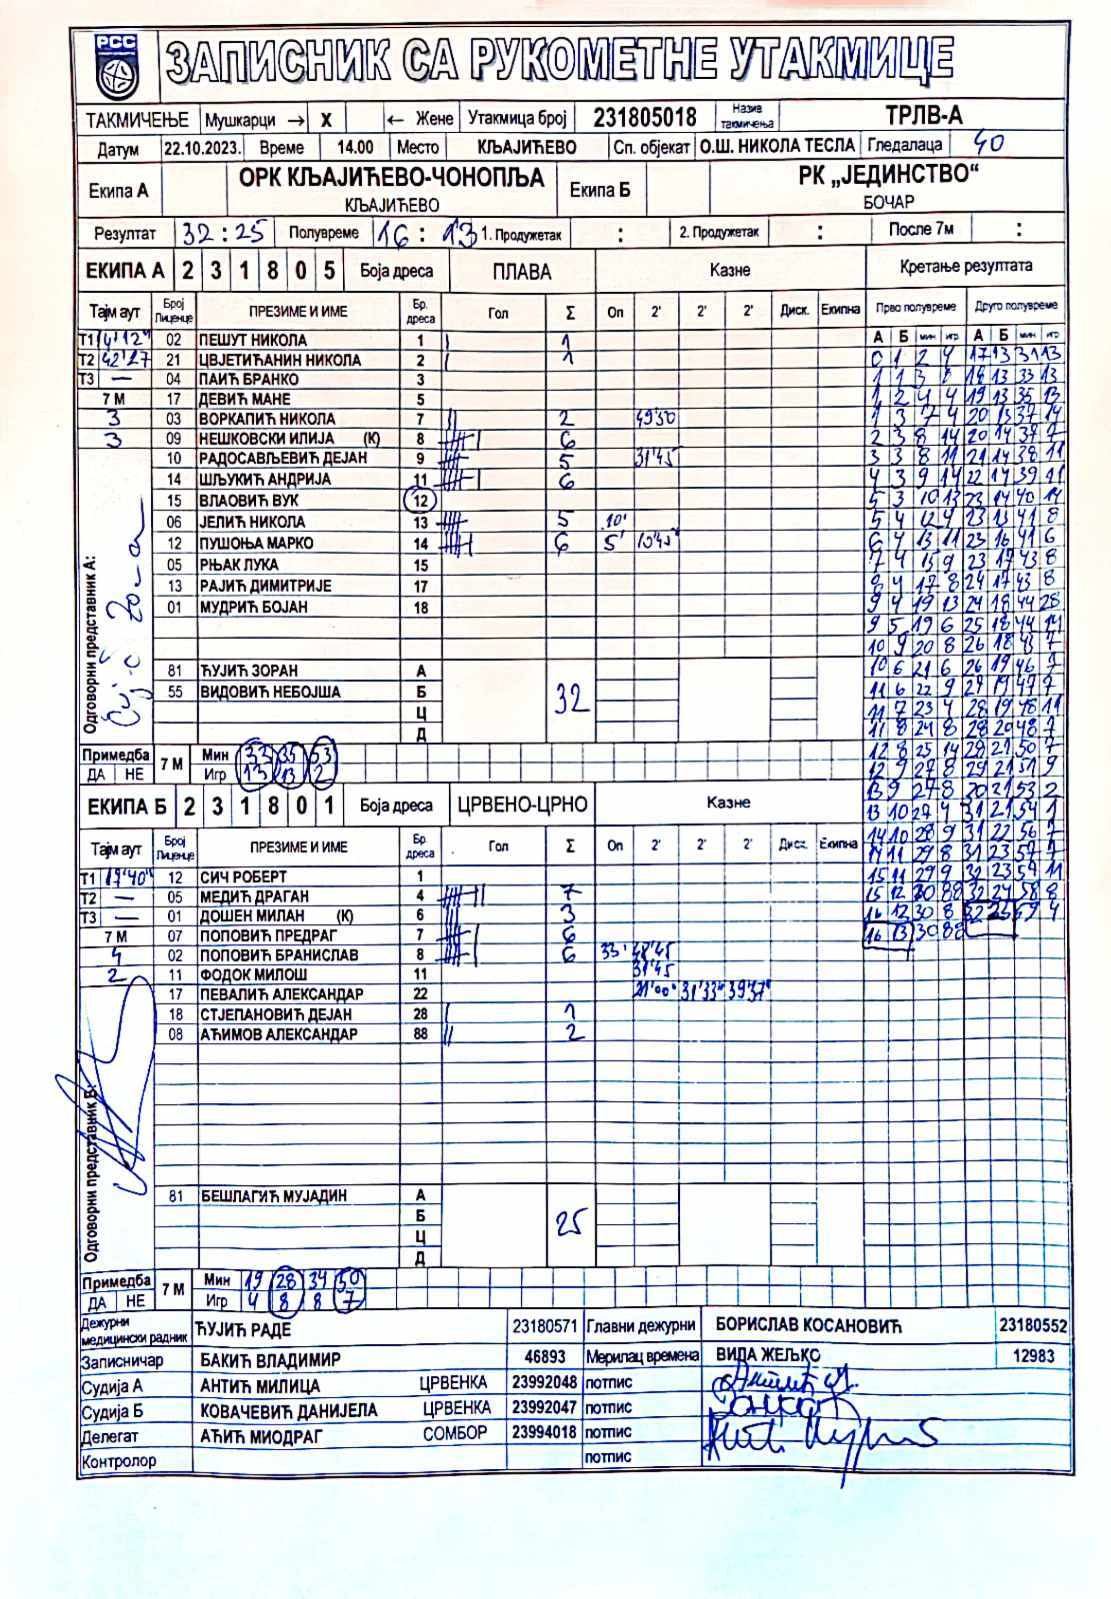 РСС
ЗАПИСНИК СА РУКОМЕТНЕ УТАКМИЦЕ
ТАКМИЧЕЊЕ Мушкарци → X ← Жене Утакмица број 231805018 Назив такмичења ТРЛВ-А
Датум 22.10.2023. Време 14.00 Место КЉАЈИЋЕВО Сп. објекат О.Ш. НИКОЛА ТЕСЛА Гледалаца 40
Екипа А ОРК КЉАЈИЋЕВО-ЧОНОПЉА Екипа Б РК „ЈЕДИНСТВО“
КЉАЈИЋЕВО БОЧАР
Резултат 32:25 Полувреме 16:13 1. Продужетак : 2. Продужетак : После 7м :
ЕКИПА А 2 3 1 8 0 5 Боја дреса ПЛАВА Казне Кретање резултата
Тајм аут Број Лиценце ПРЕЗИМЕ И ИМЕ Бр. дреса Гол Σ Оп 2' 2' 2' Диск. Екипна Прво полувреме Друго полувреме
А Б мин игр А Б мин игр
Т1 02 ПЕШУТ НИКОЛА 1 1
Т2 42'27 21 ЦВЈЕТИЋАНИН НИКОЛА 2 1
Т3 — 04 ПАИЋ БРАНКО 3
7 М 17 ДЕВИЋ МАНЕ 5
3 03 ВОРКАПИЋ НИКОЛА 7 2 49'30
3 09 НЕШКОВСКИ ИЛИЈА (К) 8 6
10 РАДОСАВЉЕВИЋ ДЕЈАН 9 5 31'45
14 ШЉУКИЋ АНДРИЈА 11 6
15 ВЛАОВИЋ ВУК 12
06 ЈЕЛИЋ НИКОЛА 13 5 10'
12 ПУШОЊА МАРКО 14 6 5'
05 РЊАК ЛУКА 15
13 РАЈИЋ ДИМИТРИЈЕ 17
01 МУДРИЋ БОЈАН 18
81 ЋУЈИЋ ЗОРАН А
55 ВИДОВИЋ НЕБОЈША Б
Ц
Д
32
Одговорни представник А:
Примедба ДА НЕ 7 М Мин 33 35 53
Игр 13 13 2
ЕКИПА Б 2 3 1 8 0 1 Боја дреса ЦРВЕНО-ЦРНО Казне
Тајм аут Број Лиценце ПРЕЗИМЕ И ИМЕ Бр. дреса Гол Σ Оп 2' 2' 2' Диск. Екипна
Т1 19'40" 12 СИЧ РОБЕРТ 1
Т2 — 05 МЕДИЋ ДРАГАН 4 7
Т3 — 01 ДОШЕН МИЛАН (К) 6 3
7 М 07 ПОПОВИЋ ПРЕДРАГ 7 6
4 02 ПОПОВИЋ БРАНИСЛАВ 8 6 33'
2 11 ФОДОК МИЛОШ 11 31'45
17 ПЕВАЛИЋ АЛЕКСАНДАР 22 21'00" 31'33" 39'37"
18 СТЈЕПАНОВИЋ ДЕЈАН 28 1
08 АЋИМОВ АЛЕКСАНДАР 88 2
81 БЕШЛАГИЋ МУЈАДИН А
Б
Ц
Д
25
Одговорни представник Б:
Примедба ДА НЕ 7 М Мин 19 28 34 50
Игр 4 8 8 7
0 1 2 4 17 13 31 13
1 1 3 18 13 33 13
1 2 4 4 19 13 35 13
1 3 7 4 20 13 37 14
2 3 8 14 20 14 37 7
3 3 8 11 21 14 38 11
4 3 9 14 22 14 39 11
5 3 10 13 23 14 40 14
5 4 12 4 23 15 41 8
6 4 13 11 23 16 41 6
7 4 15 9 23 17 43 8
8 4 17 8 24 17 43 8
9 4 19 13 24 18 44 28
9 5 19 6 25 18 44 14
10 20 8 26 18 45 7
10 6 21 6 26 19 46 7
11 6 22 9 27 19 47 7
11 7 23 4 28 19 48 11
11 8 24 8 28 20 48 7
12 8 25 14 28 21 50 7
12 9 27 8 29 21 51 9
13 9 27 8 21 53 2
13 10 27 4 31 21 54 1
14 10 28 9 31 22 56 7
14 11 29 8 31 23 57 7
15 11 29 9 32 23 57 11
15 12 30 88 32 24 58 8
16 12 30 8 32 25 59 4
16 13 30 88
Дежурни медицински радник ЋУЈИЋ РАДЕ 23180571 Главни дежурни БОРИСЛАВ КОСАНОВИЋ 23180552
Записничар БАКИЋ ВЛАДИМИР 46893 Мерилац времена ВИЛА ЖЕЉКО 12983
Судија А АНТИЋ МИЛИЦА ЦРВЕНКА 23992048 потпис
Судија Б КОВАЧЕВИЋ ДАНИЈЕЛА ЦРВЕНКА 23992047 потпис
Делегат АЋИЋ МИОДРАГ СОМБОР 23994018 потпис
Контролор потпис